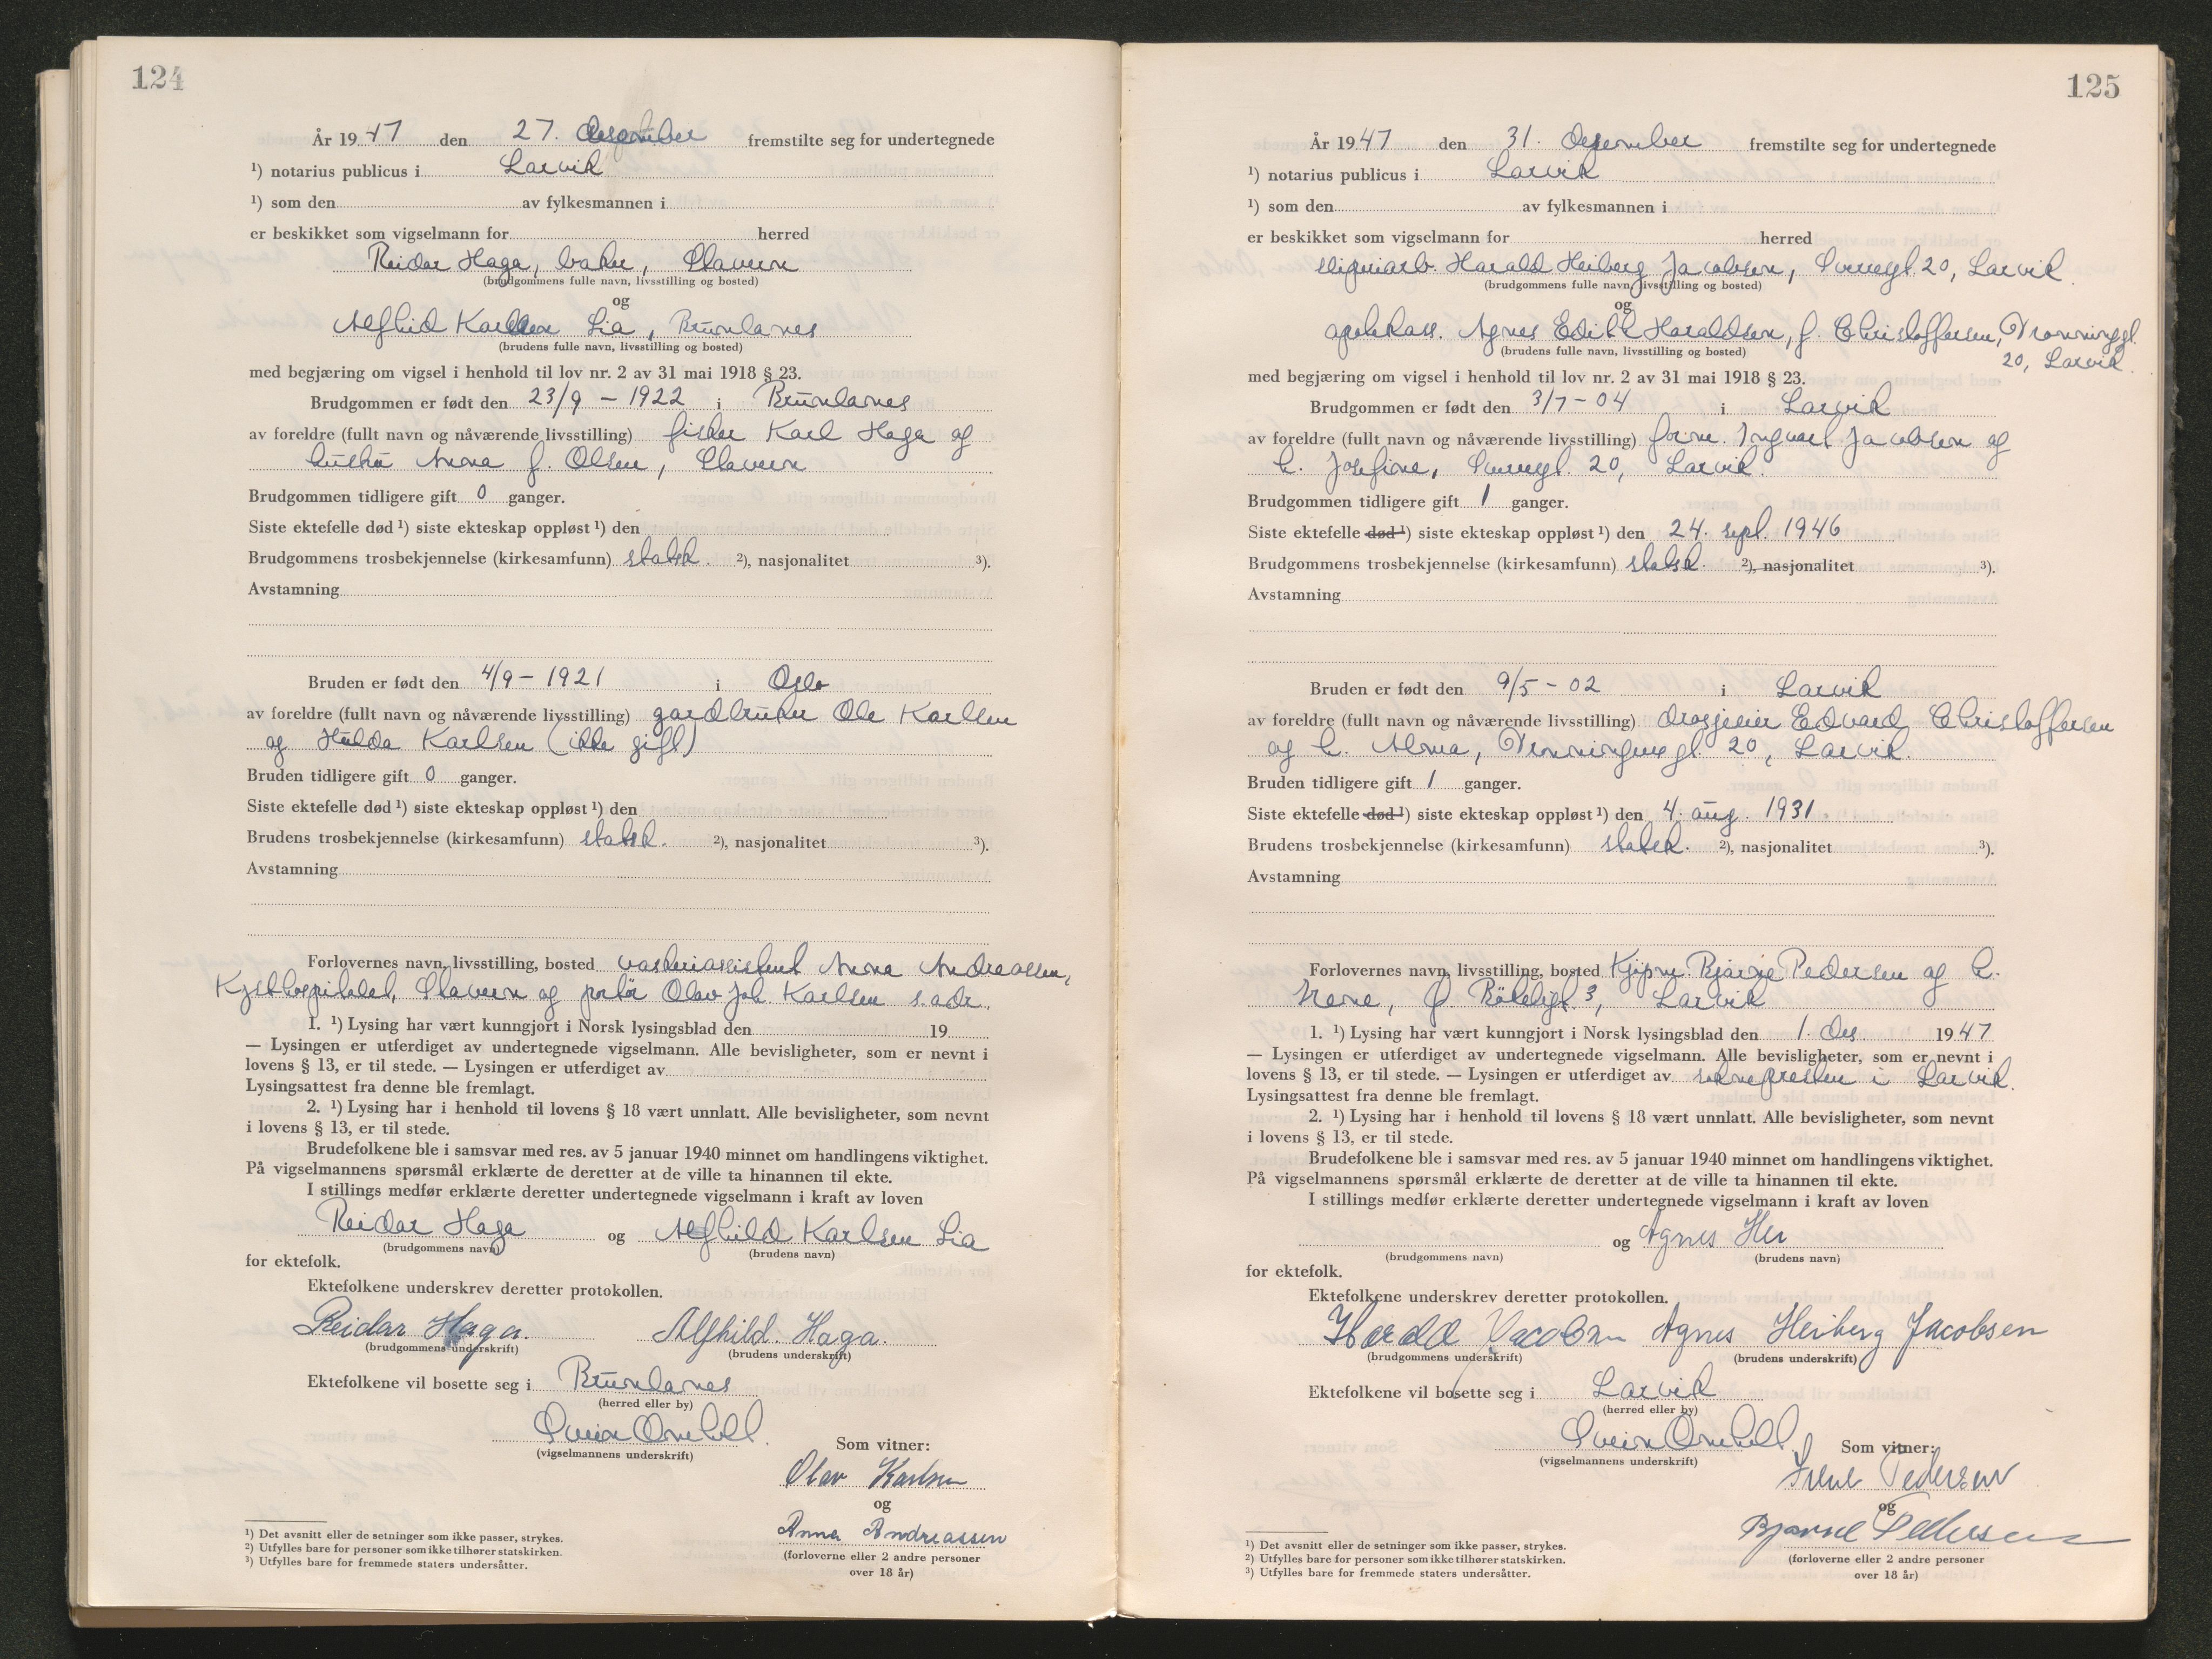 124
År 1947 den 27. desember fremstilte seg for undertegnede
¹) notarius publicus i Larvik
¹) som den av fylkesmannen i
er beskikket som vigselmann for herred
Reidar Haga, baker, Stavern
(brudgommens fulle navn, livsstilling og bosted)
og
Alfhild Karlsen Lia, Brunlanes
(brudens fulle navn, livsstilling og bosted)
med begjæring om vigsel i henhold til lov nr. 2 av 31 mai 1918 § 23.
Brudgommen er født den 23/9 - 1922 i Brunlanes
av foreldre (fullt navn og nåværende livsstilling) fisker Karl Haga og
hustru Anna f. Olsen, Stavern
Brudgommen tidligere gift 0 ganger.
Siste ektefelle død ¹) siste ekteskap oppløst ¹) den
Brudgommens trosbekjennelse (kirkesamfunn) statsk. ²), nasjonalitet ³).
Avstamning
Bruden er født den 4/9 - 1921 i Oslo
av foreldre (fullt navn og nåværende livsstilling) gardbruker Ole Karlsen
og Hulda Karlsen (ikke gift)
Bruden tidligere gift 0 ganger.
Siste ektefelle død ¹) siste ekteskap oppløst ¹) den
Brudens trosbekjennelse (kirkesamfunn) statsk. ²), nasjonalitet ³).
Avstamning
Forlovernes navn, livsstilling, bosted vaskeriassistent Anna Andreassen,
Kysthospitalet, Stavern og portør Olav Joh. Karlsen s. adr.
1. ¹) Lysing har vært kunngjort i Norsk lysingsblad den 19
— Lysingen er utferdiget av undertegnede vigselmann. Alle bevisligheter, som er nevnt i
lovens § 13, er til stede. — Lysingen er utferdiget av
Lysingsattest fra denne ble fremlagt.
2. ¹) Lysing har i henhold til lovens § 18 vært unnlatt. Alle bevisligheter, som nevnt
i lovens § 13, er til stede.
Brudefolkene ble i samsvar med res. av 5 januar 1940 minnet om handlingens viktighet.
På vigselmannens spørsmål erklærte de deretter at de ville ta hinannen til ekte.
I stillings medfør erklærte deretter undertegnede vigselmann i kraft av loven
Reidar Haga og Alfhild Karlsen Lia
(brudgommens navn) (brudens navn)
for ektefolk.
Ektefolkene underskrev deretter protokollen.
Reidar Haga. Alfhild. Haga.
(brudgommens underskrift) (brudens underskrift)
Ektefolkene vil bosette seg i Brunlanes
(herred eller by)
Svein
(vigselmannens underskrift)
Som vitner:
Olav Karlsen
og
Anna Andreassen
(forloverne eller 2 andre personer
over 18 år)
¹) Det avsnitt eller de setninger som ikke passer, strykes.
²) Utfylles bare for personer som ikke tilhører statskirken.
³) Utfylles bare for fremmede staters undersåtter.
125
År 1947 den 31. desember fremstilte seg for undertegnede
¹) notarius publicus i Larvik
¹) som den av fylkesmannen i
er beskikket som vigselmann for herred
sliperiarb. Harald Heiberg Jacobsen, Sverregt. 20, Larvik.
(brudgommens fulle navn, livsstilling og bosted)
og
apotekass. Agnes Edith Haraldsen, f. Christoffersen, Dronninggt.
20, Larvik.
(brudens fulle navn, livsstilling og bosted)
med begjæring om vigsel i henhold til lov nr. 2 av 31 mai 1918 § 23.
Brudgommen er født den 3/7 - 04 i Larvik
av foreldre (fullt navn og nåværende livsstilling) Ingvart Jacobsen og
h. Josefine, Sverregt. 20, Larvik.
Brudgommen tidligere gift 1 ganger.
Siste ektefelle død ¹) siste ekteskap oppløst ¹) den 24. sept. 1946
Brudgommens trosbekjennelse (kirkesamfunn) statsk. ²), nasjonalitet ³).
Avstamning
Bruden er født den 9/5 - 02 i Larvik
av foreldre (fullt navn og nåværende livsstilling) drosjeeier Edvard Christoffersen
og h. Alma, Dronningens gt. 20, Larvik.
Bruden tidligere gift 1 ganger.
Siste ektefelle død ¹) siste ekteskap oppløst ¹) den 4. aug. 1931
Brudens trosbekjennelse (kirkesamfunn) statsk. ²), nasjonalitet ³).
Avstamning
Forlovernes navn, livsstilling, bosted Kjøpm. Bjarne Pedersen og h.
Irene, Ø. Bøkeligt. 3, Larvik
1. ¹) Lysing har vært kunngjort i Norsk lysingsblad den 1. des. 1947
— Lysingen er utferdiget av undertegnede vigselmann. Alle bevisligheter, som er nevnt i
lovens § 13, er til stede. — Lysingen er utferdiget av soknepresten i Larvik.
Lysingsattest fra denne ble fremlagt.
2. ¹) Lysing har i henhold til lovens § 18 vært unnlatt. Alle bevisligheter, som nevnt
i lovens § 13, er til stede.
Brudefolkene ble i samsvar med res. av 5 januar 1940 minnet om handlingens viktighet.
På vigselmannens spørsmål erklærte de deretter at de ville ta hinannen til ekte.
I stillings medfør erklærte deretter undertegnede vigselmann i kraft av loven
og Agnes Hei
(brudgommens navn) (brudens navn)
for ektefolk.
Ektefolkene underskrev deretter protokollen.
Harald Jacobsen Agnes Heiberg Jacobsen
(brudgommens underskrift) (brudens underskrift)
Ektefolkene vil bosette seg i Larvik
(herred eller by)
Svein
(vigselmannens underskrift)
Som vitner:
Irene Pedersen
og
Bjarne Pedersen
(forloverne eller 2 andre personer
over 18 år)
¹) Det avsnitt eller de setninger som ikke passer, strykes.
²) Utfylles bare for personer som ikke tilhører statskirken.
³) Utfylles bare for fremmede staters undersåtter.